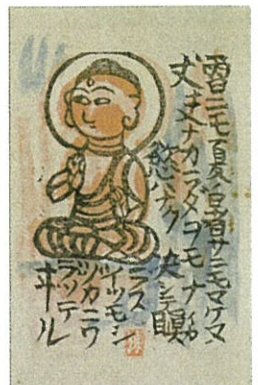 雪ニモ夏ノ暑サニモマケヌ
丈夫ナカラダヲモチ
慾ハナク 決シテ瞋
ラズ
イツモシ
ヅカニワ
ラッテ
ヰル